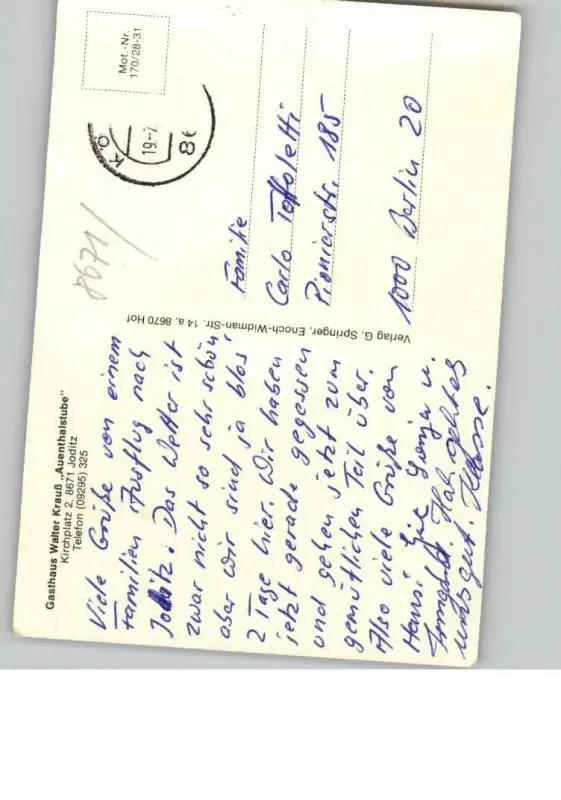 Gasthaus Walter Krauß „Auenthalstube"
Kirchplatz 2, 8671 Joditz
Telefon (09295) 325
Viele Grüße von einem
Familien Ausflug nach
Joditz. Das Wetter ist
zwar nicht so sehr schön
aber wir sind ja blos
2 Tage hier. Wir haben
jetzt gerade gegessen
und gehen jetzt zum
gemütlichen Teil über.
Also viele Grüße von
Hansi u.
uns gut. Klasse.
Verlag G. Springer, Enoch-Widman-Str. 14 a, 8670 Hof
8671/
Mot.-Nr.
170/28-31
19.-7
86
Familie
Carlo Toffoletti
Pionierstr. 185
1000 Berlin 20